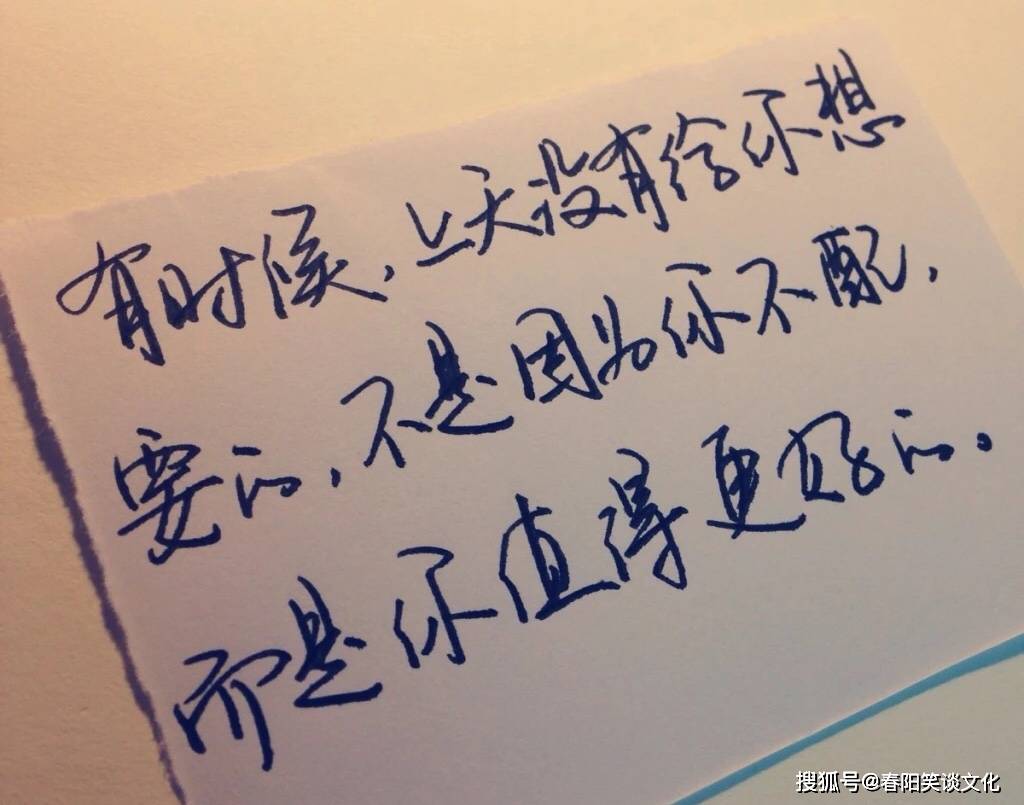 有时候,上天没有给你想
要的,不是因为你不配,
而是你值得更好的。
搜狐号@春阳笑谈文化